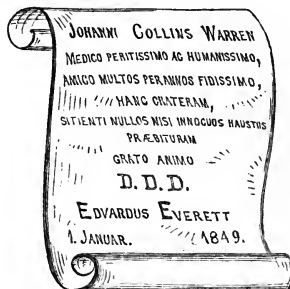 JOHANNI COLLINS WARREN
MEDICO PERITISSIMO AC HUMANISSIMO,
AMICO MULTOS PER ANNOS FIDISSIMO,
HANC CRATERAM,
SITIENTI NULLOS NISI INNOCUOS HAUSTUS
PRÆBITURAM
GRATO ANIMO
D.D.D.
EDVARDUS EVERETT
1. JANUAR. 1849.